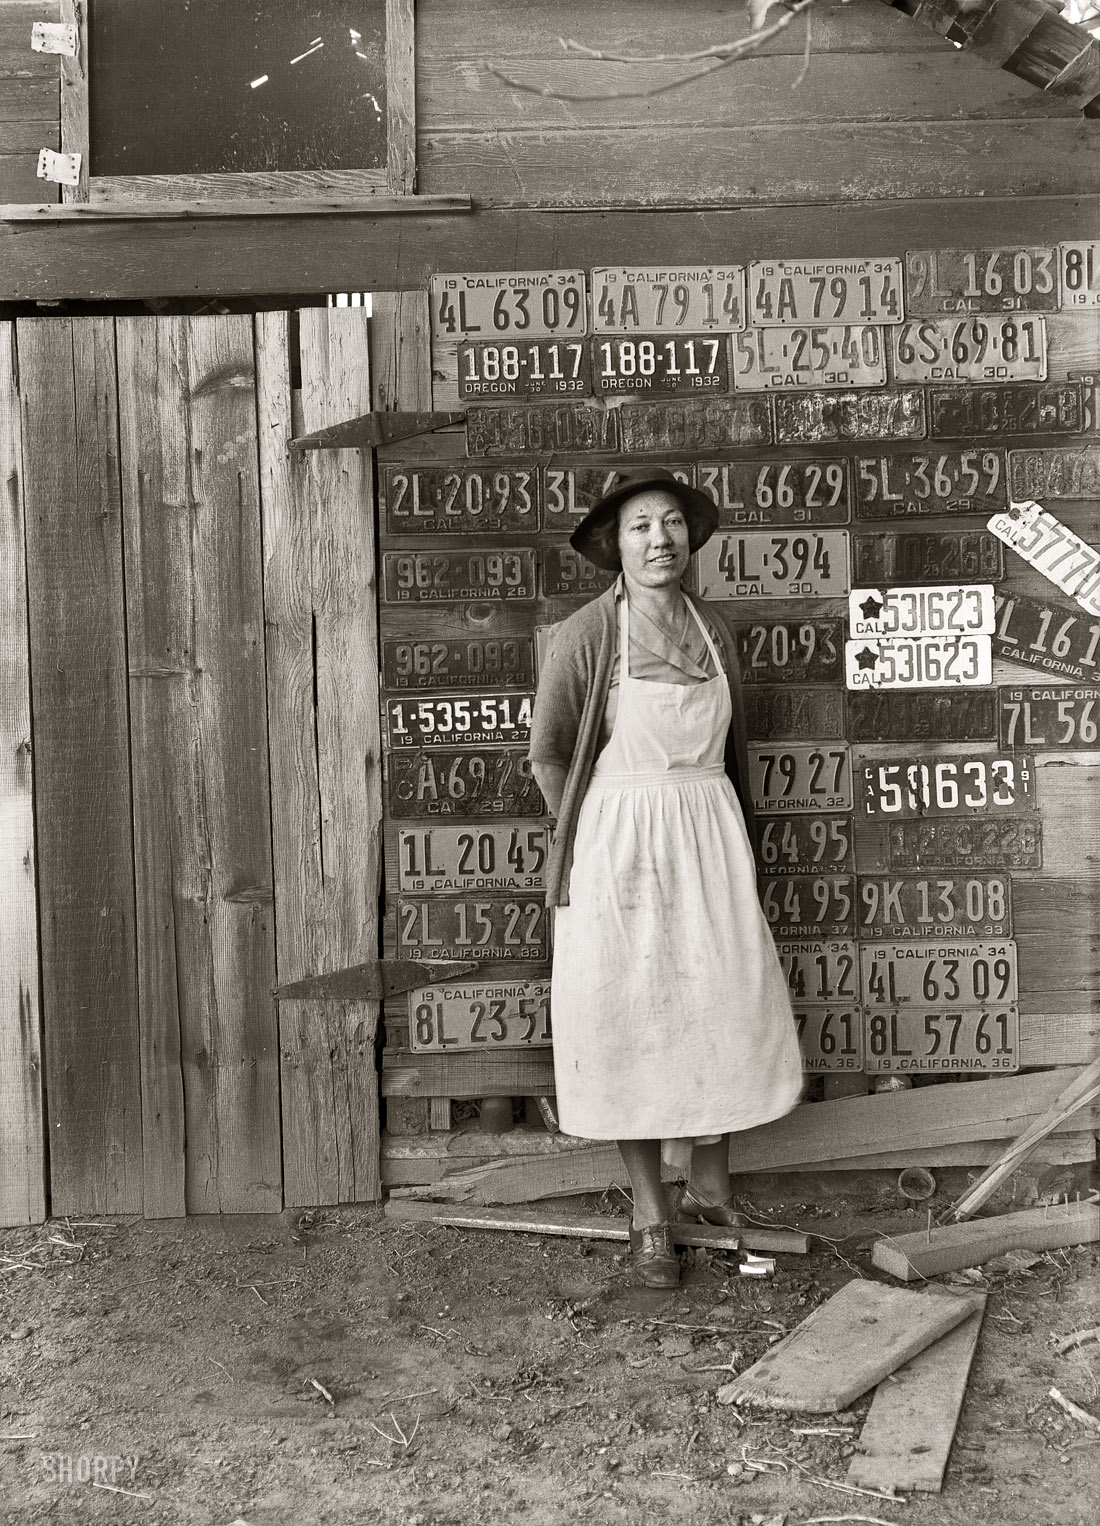 19 CALIFORNIA 34
4L 63 09
19 CALIFORNIA 34
4A 79 14
19 CALIFORNIA 34
4A 79 14
9L 16 03
CAL 31
8L
19
188·117
OREGON JUNE 30 1932
188·117
OREGON JUNE 30 1932
5L·25·40
CAL 30
6S·69·81
CAL 30
2L·20·93
CAL 29
3L
3L 66 29
CAL 31
5L·36·59
CAL 29
962·093
19 CALIFORNIA 28
4L·394
CAL 30
CAL 57770
★ 531623
CAL
★ 531623
CAL
L 16 1
CALIFORNIA
962·093
19 CALIFORNIA 28
20·93
1·535·514
19 CALIFORNIA 27
19 CALIFORN
7L 56
A·69·29
CAL 29
79 27
LIFORNIA 32
CAL 58633 191
1L 20 45
19 CALIFORNIA 32
64 95
1·220·226
CALIFORNIA 27
2L 15 22
19 CALIFORNIA 33
64 95
FORNIA 37
9K 13 08
19 CALIFORNIA 33
19 CALIFORNIA 34
8L 23 51
ORNIA 34
4 12
19 CALIFORNIA 34
4L 63 09
7 61
NIA 36
8L 57 61
19 CALIFORNIA 36
SHORPY